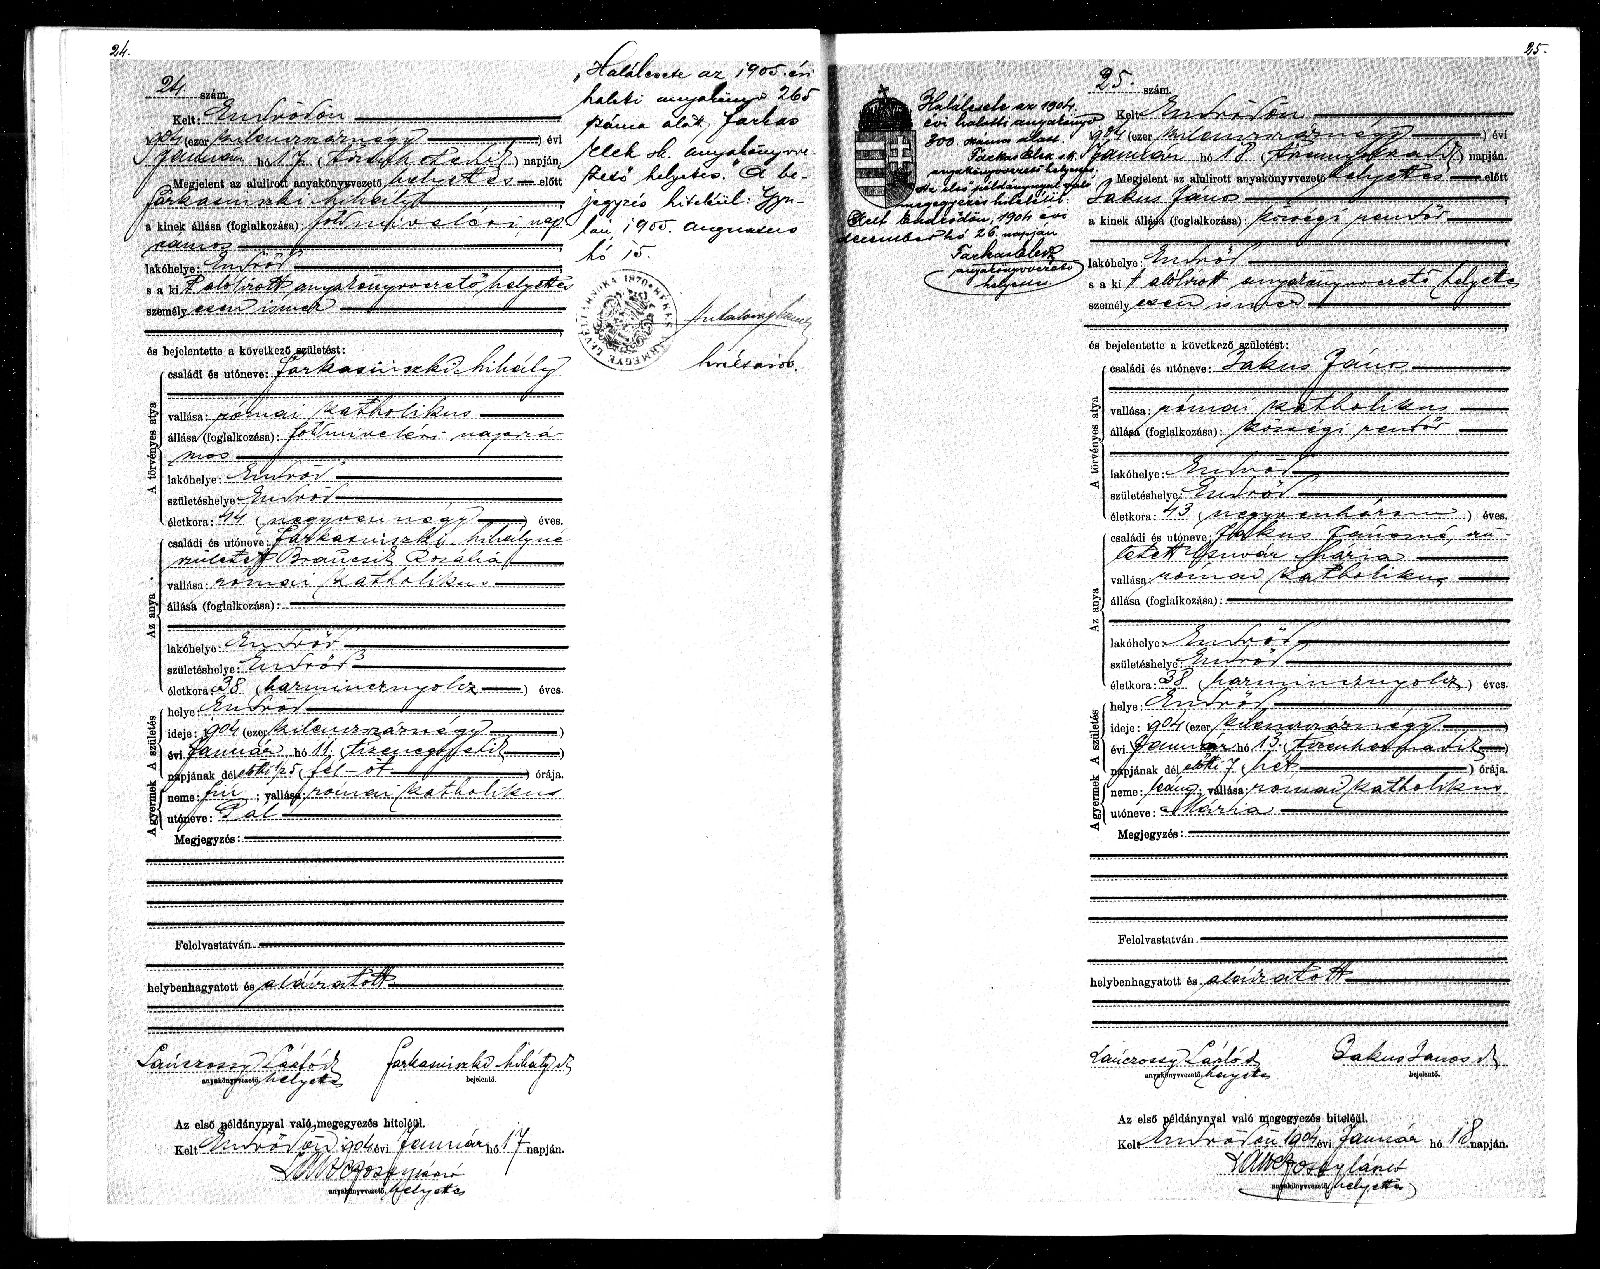 24.
24. szám.
Kelt: Endrődön
904 (ezer kilenczszáznégy) évi
Január hó 17 (tizenhetedik) napján,
Megjelent az alulirott anyakönyvvezető helyettes előtt
Farkasinszki Mihály
a kinek állása (foglalkozása): földmivelési nap
számos
lakóhelye: Endrőd
s a ki t alólirott anyakönyvvezető helyettes
személyesen ismer
és bejelentette a következő születést:
A törvényes atya
családi és utóneve: Farkasinszki Mihály
vallása: római katholikus
állása (foglalkozása): földmivelési napszá-
mos
lakóhelye: Endrőd
születéshelye: Endrőd
életkora: 44 (negyvennégy) éves.
Az anya
családi és utóneve: Farkasinszki Mihályné
született Rozália
vallása: római katholikus
állása (foglalkozása):
lakóhelye: Endrőd
születéshelye: Endrőd
életkora: 38 (harmincznyolcz) éves.
A gyermek A születés
helye: Endrőd
ideje: 904 (ezer kilenczszáznégy)
évi Január hó 11 (tizenegyedik)
napjának dél előtti ½5 (fél öt) órája.
neme: fiú; vallása: római katholikus
utóneve: Pál
Megjegyzés:
Felolvastatván
helybenhagyatott és aláíratott
Lánczossy László
Farkasinszki Mihály sk
anyakönyvvezető helyettes
bejelentő.
Az első példánynyal való megegyezés hiteléül.
Kelt Endrődön 904 évi Január hó 17 napján.
Lánczossy László
anyakönyvvezető helyettes
„Halálesete az 1905. évi
halotti anyakönyv 265
száma alatt. Farkas
Elek sk. anyakönyvve-
zető helyettes." A be-
jegyzés hiteléül: Gyu-
lán 1905. augusztus
hó 15.
BÉKÉS VÁRMEGYE LEVÉLTÁRNOKA 1870
25.
Halálesete az 1904.
évi halotti anyakönyv
300. száma alatt.
Farkas Elek sk.
anyakönyvvezető helyettes
Az első példánynyal való
megegyezés hiteléül.
Kelt Endrődön, 1904 évi
deczember hó 26. napján
Farkas Elek
anyakönyvvezető
helyettes
25. szám.
Kelt Endrődön
904 (ezer kilenczszáznégy) évi
Január hó 18 (tizennyolczadik) napján.
Megjelent az alulirott anyakönyvvezető helyettes előtt
Jakus János
a kinek állása (foglalkozása): községi rendőr
lakóhelye: Endrőd
s a ki t alólirott anyakönyvvezető helyettes
személyesen ismer
és bejelentette a következő születést:
A törvényes atya
családi és utóneve: Jakus János
vallása: római katholikus
állása (foglalkozása): községi rendőr
lakóhelye: Endrőd
születéshelye: Endrőd
életkora: 43 (negyvenhárom) éves.
Az anya
családi és utóneve: Jakus Jánosné, szü-
letett Mária
vallása római katholikus
állása (foglalkozása):
lakóhelye: Endrőd
születéshelye: Endrőd
életkora: 38 (harmincznyolcz) éves.
A gyermek A születés
helye: Endrőd
ideje: 904 (ezer kilenczszáznégy)
évi Január hó 13 (tizenharmadik)
napjának dél előtti 7 (hét) órája.
neme: leány; vállása római katholikus
utóneve: Mária
Megjegyzés:
Felolvastatván
helybenhagyatott és aláíratott
Lánczossy László
Jakus János sk
anyakönyvvezető helyettes
bejelentő.
Az első példánynyal való megegyezés hiteléül.
Kelt Endrődön 1904 évi Január hó 18 napján.
Lánczossy László
anyakönyvvezető helyettes